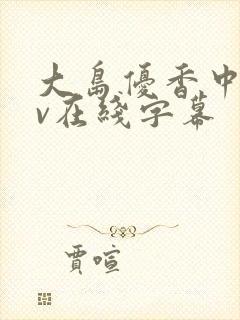 大島優香中
v在綫字幕
賈喧